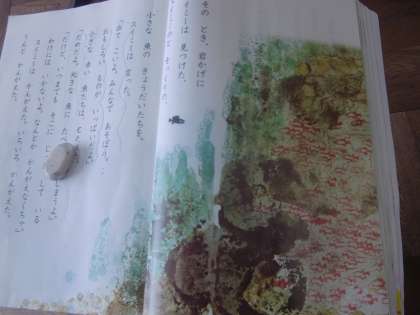 その とき、岩かげに
スイミーは 見つけた、
小さな 魚の きょうだいたちを。
スイミーは 言った。
「出て こいよ。みんなで あそぼう。
おもしろい ものが いっぱいだよ。」
小さな 赤い 魚たちは、
「だめだよ。大きな 魚に たべ
「だけど、いつまでも そこに じ して いる
わけには いかないよ。なんとか かんがえなくちゃ。」
スイミーは かんがえた。いろいろ かんがえた。
うんと かんがえた。